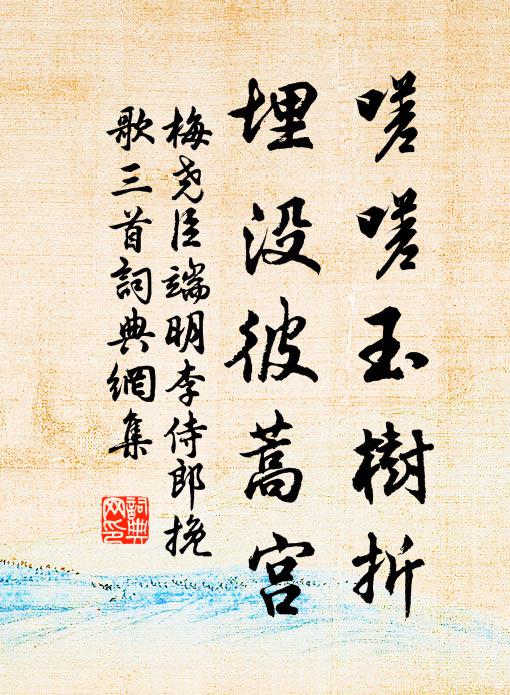 嗟嗟玉樹折
埋没彼蒿宫
梅尧臣端明李侍郎挽
歌三首詞典網集
詞典
网印